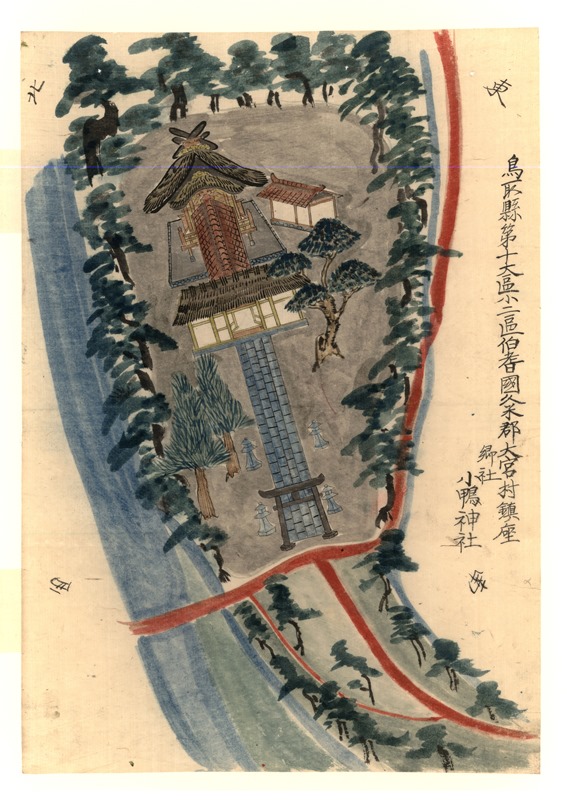 鳥取縣第十大區小二區伯耆國久米郡大宮村鎮座
郷社
小鴨神社
東
北
西
南